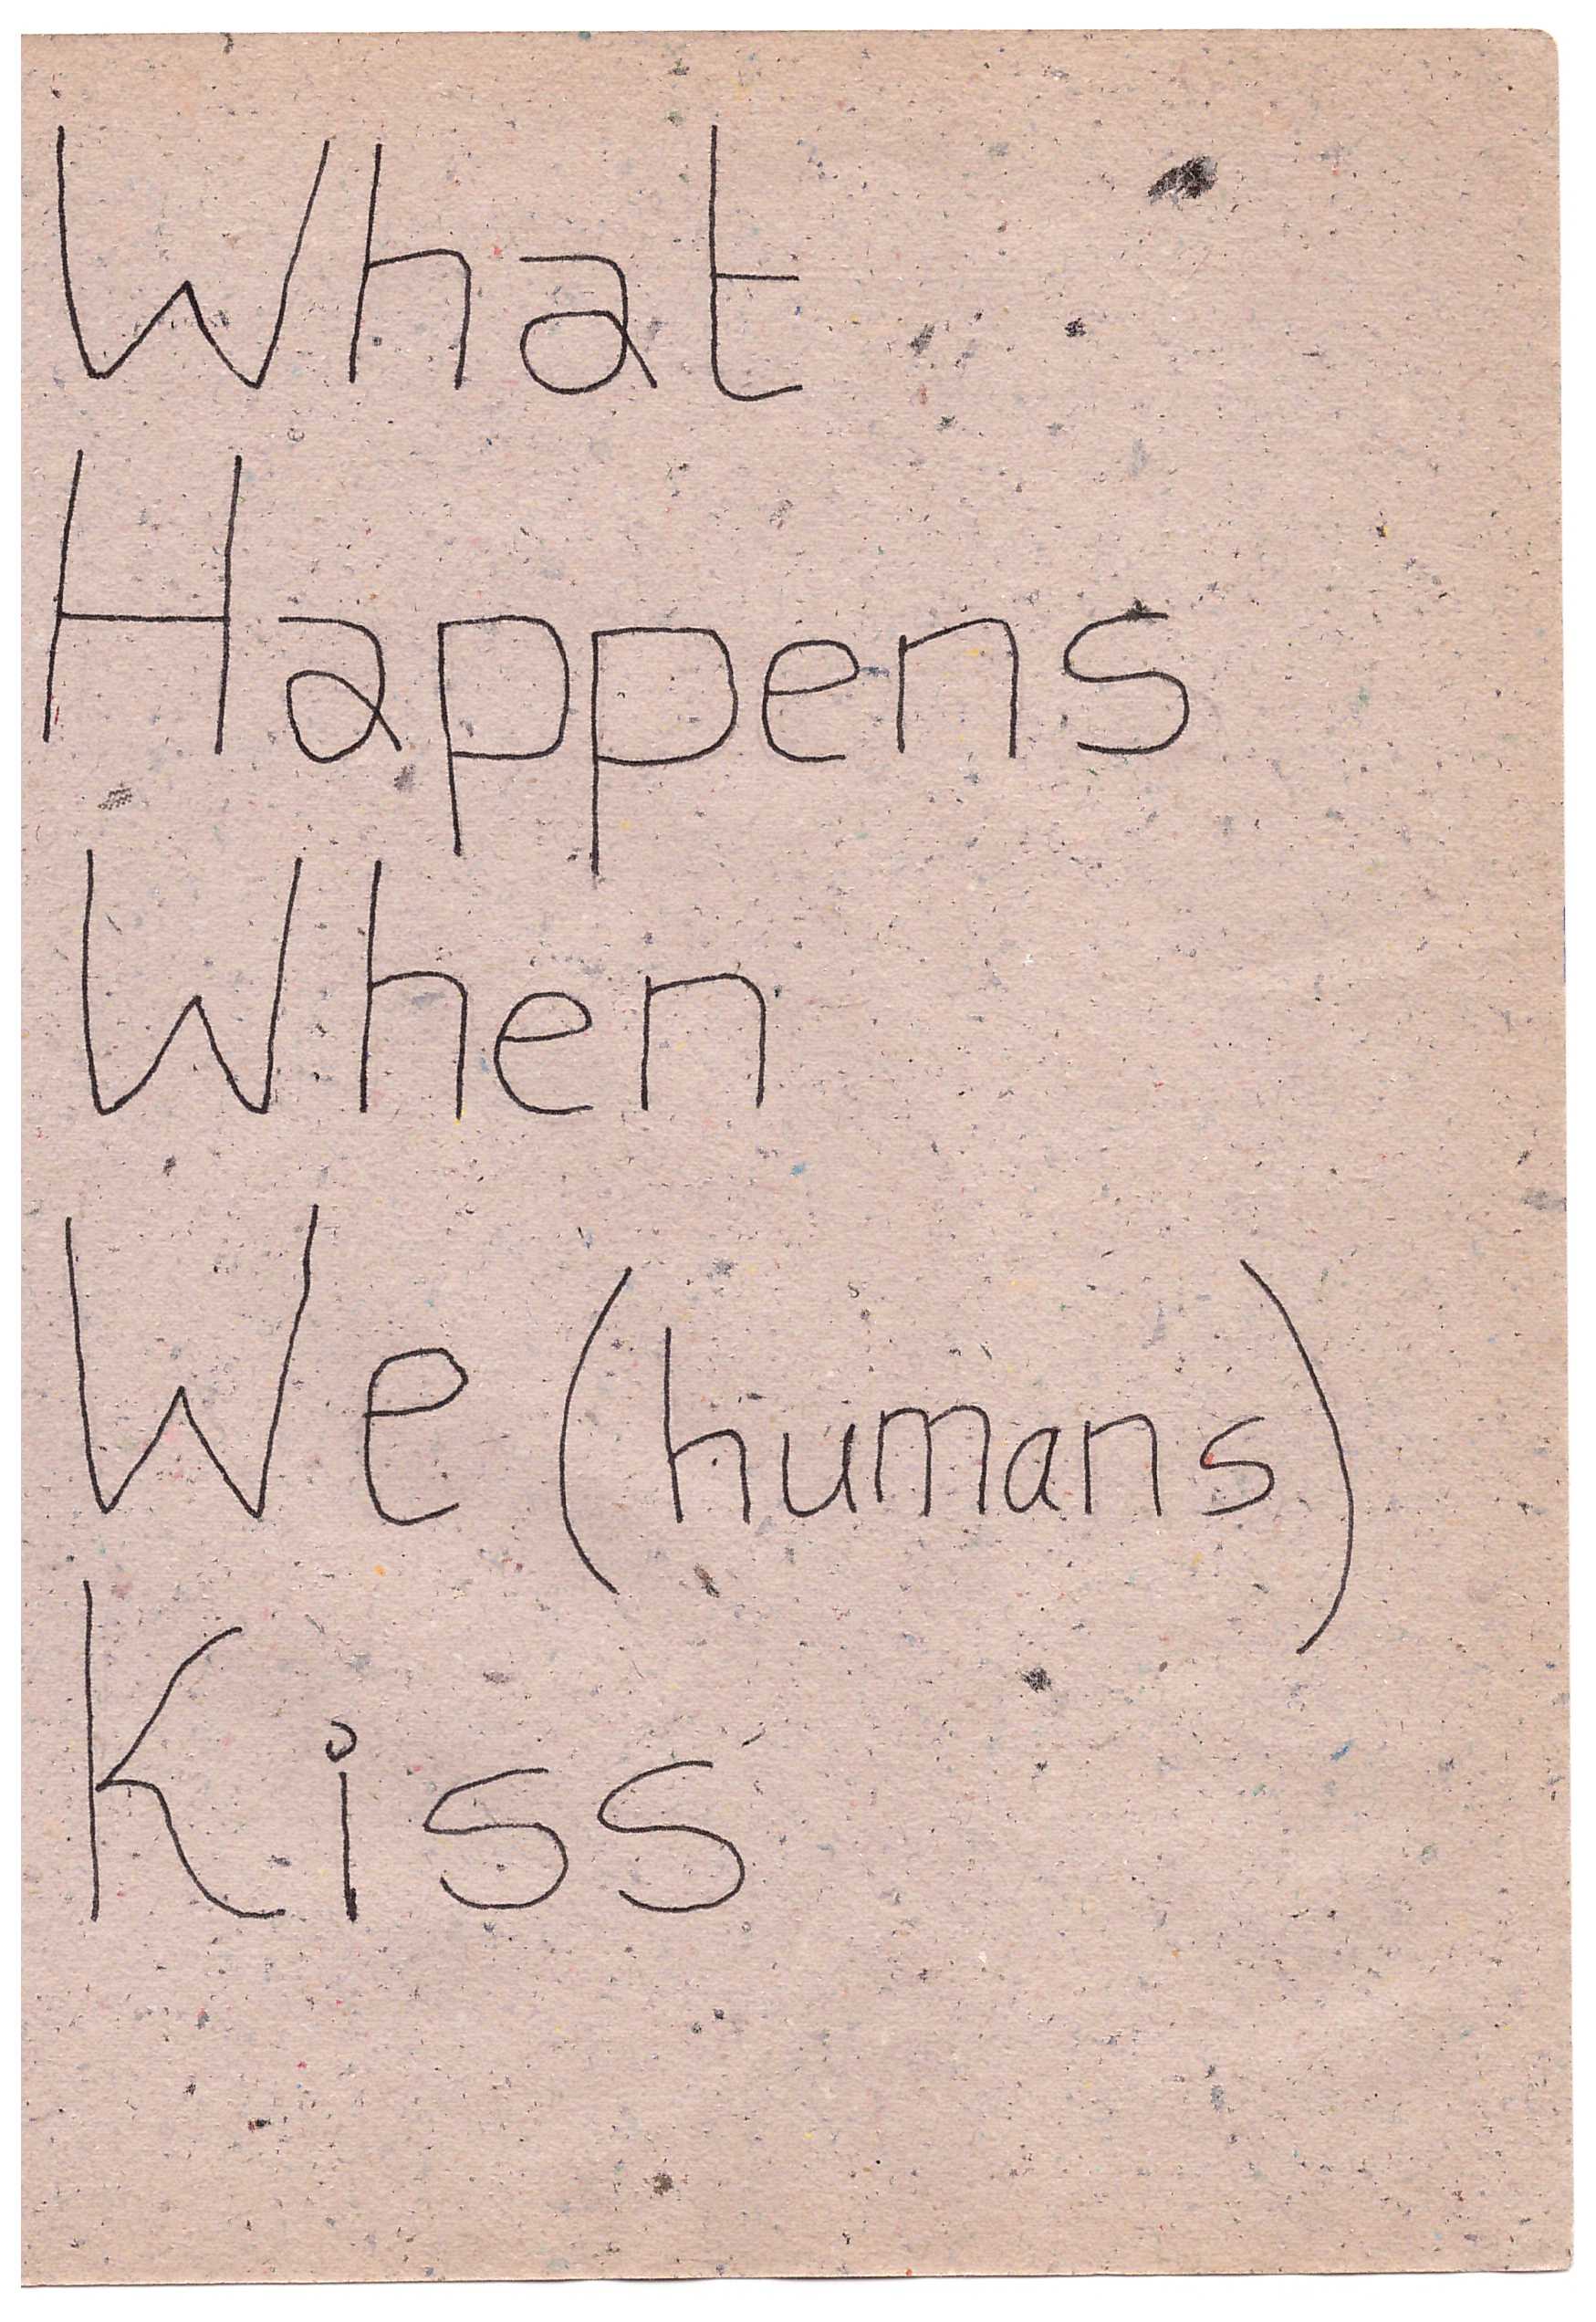 What
Happens
When
We (humans)
Kiss